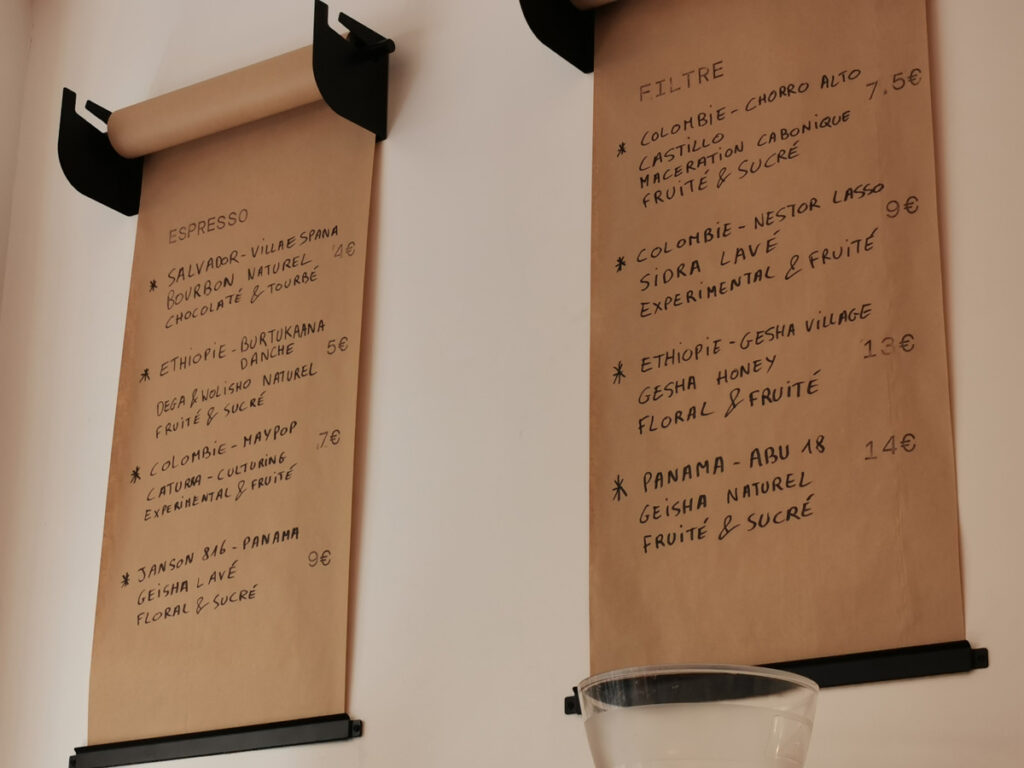 ESPRESSO
* SALVADOR - VILLA ESPANA 4€
BOURBON NATUREL
CHOCOLATÉ & TOURBÉ
* ETHIOPIE - BURTUKAANA
DANCHE 5€
DEGA & WOLISHO NATUREL
FRUITÉ & SUCRÉ
* COLOMBIE - MAYPOP 7€
CATURRA - CULTURING
EXPERIMENTAL & FRUITÉ
* JANSON 816 - PANAMA
GEISHA LAVÉ 9€
FLORAL & SUCRÉ
FILTRE
* COLOMBIE - CHORRO ALTO 7.5€
CASTILLO
MACERATION CABONIQUE
FRUITÉ & SUCRÉ
* COLOMBIE - NESTOR LASSO 9€
SIDRA LAVÉ
EXPERIMENTAL & FRUITÉ
* ETHIOPIE - GESHA VILLAGE 13€
GESHA HONEY
FLORAL & FRUITÉ
* PANAMA - ABU 18 14€
GEISHA NATUREL
FRUITÉ & SUCRÉ